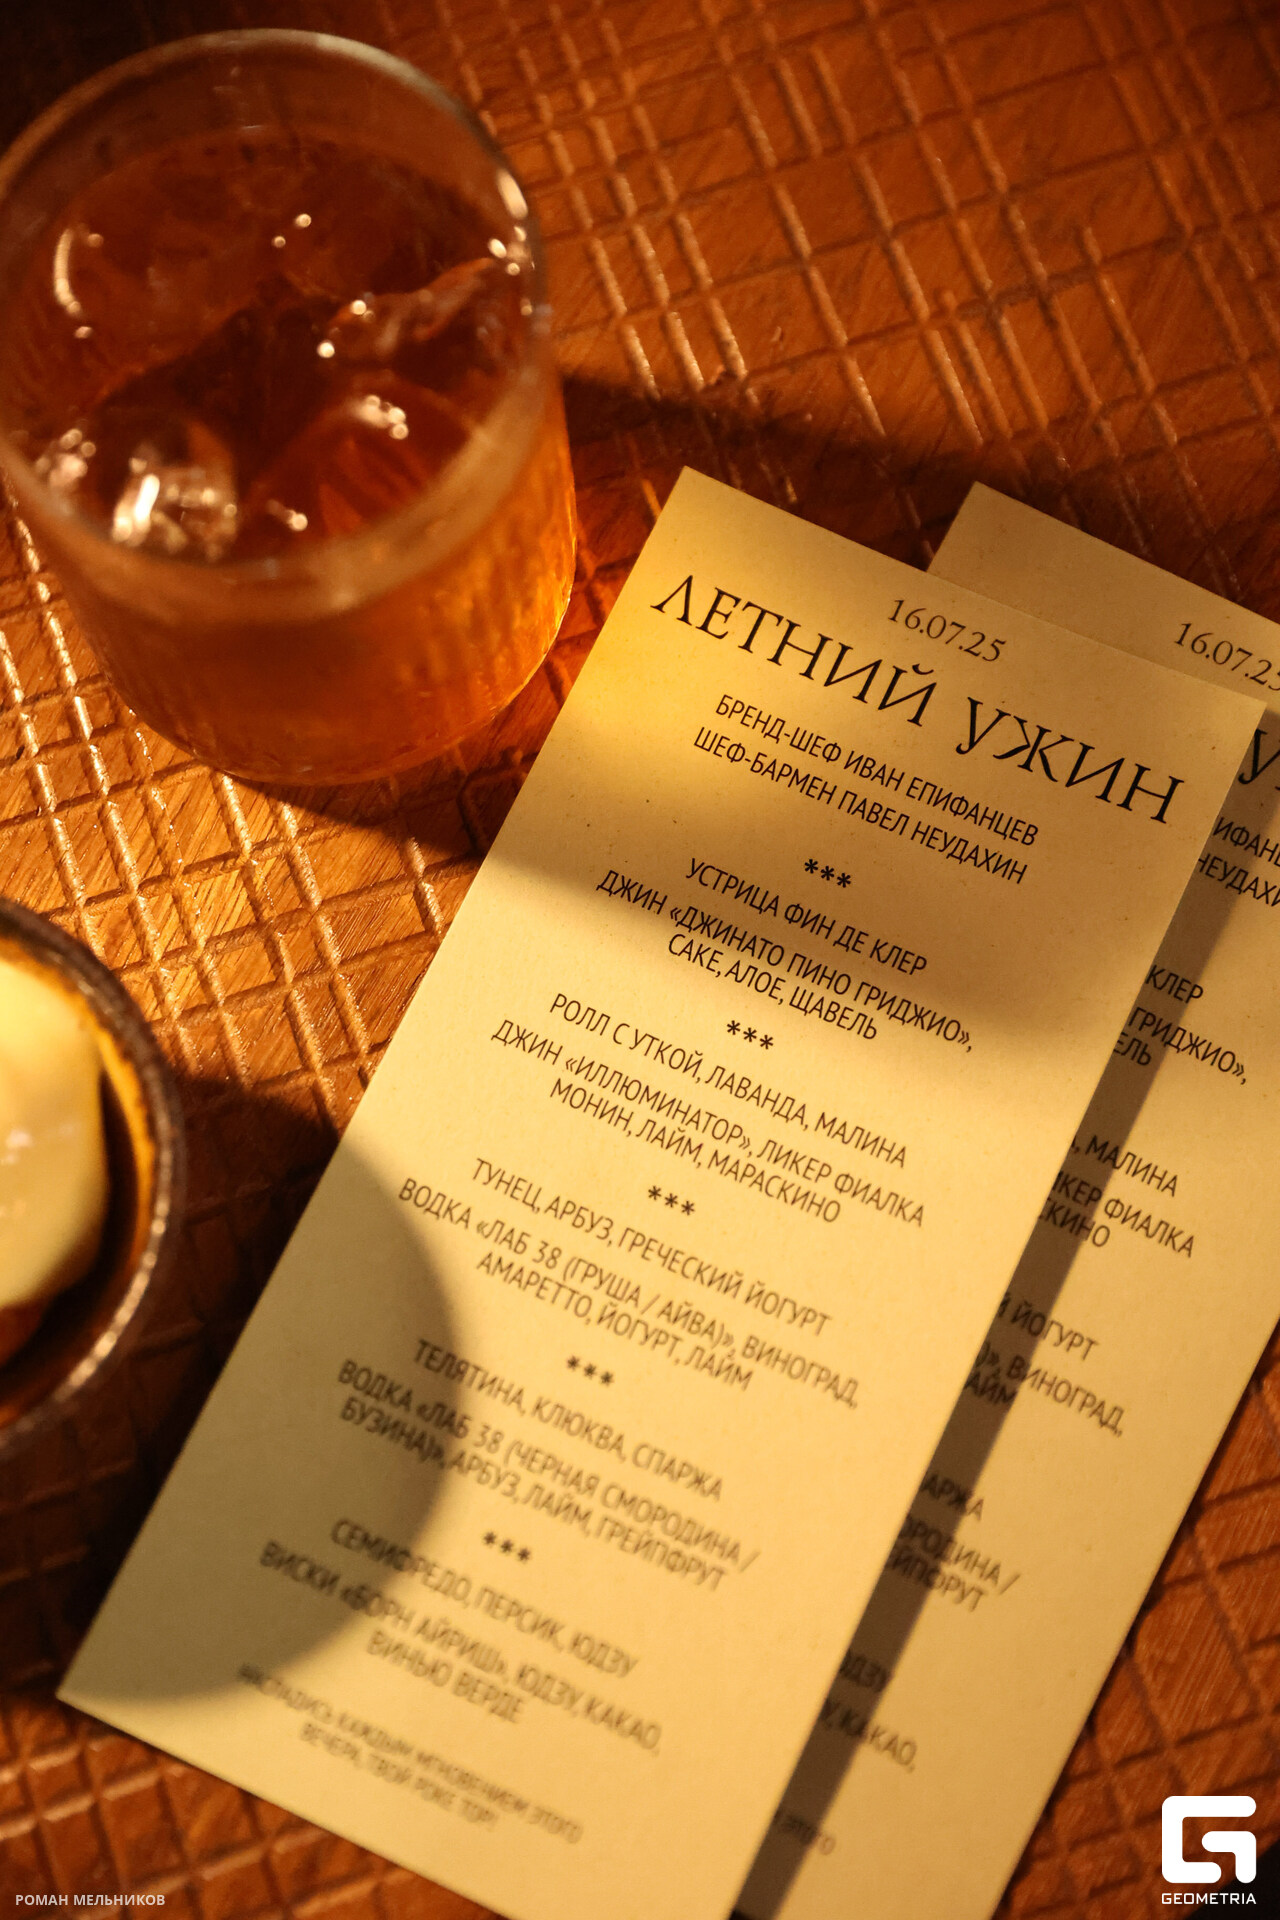 16.07.25
ЛЕТНИЙ УЖИН
БРЕНД-ШЕФ ИВАН ЕПИФАНЦЕВ
ШЕФ-БАРМЕН ПАВЕЛ НЕУДАХИН
***
УСТРИЦА ФИН ДЕ КЛЕР
ДЖИН «ДЖИНАТО ПИНО ГРИДЖИО»,
САКЕ, АЛОЕ, ЩАВЕЛЬ
***
РОЛЛ С УТКОЙ, ЛАВАНДА, МАЛИНА
ДЖИН «ИЛЛЮМИНАТОР», ЛИКЕР ФИАЛКА
МОНИН, ЛАЙМ, МАРАСКИНО
***
ТУНЕЦ, АРБУЗ, ГРЕЧЕСКИЙ ЙОГУРТ
ВОДКА «ЛАБ 38 (ГРУША / АЙВА)», ВИНОГРАД,
АМАРЕТТО, ЙОГУРТ, ЛАЙМ
***
ТЕЛЯТИНА, КЛЮКВА, СПАРЖА
ВОДКА «ЛАБ 38 (ЧЕРНАЯ СМОРОДИНА /
БУЗИНА)», АРБУЗ, ЛАЙМ, ГРЕЙПФРУТ
***
СЕМИФРЕДО, ПЕРСИК, ЮДЗУ
ВИСКИ «БОРН АЙРИШ», ЮДЗУ, КАКАО,
ВИНЬО ВЕРДЕ
НАСЛАДИСЬ КАЖДЫМ МГНОВЕНИЕМ ЭТОГО
ВЕЧЕРА, ТВОЙ РОКЕ ТОР!
16.07.25
У
ИФАНЦ
НЕУДАХИ
КЛЕР
ГРИДЖИО»,
ЕЛЬ
МАЛИНА
ИКЕР ФИАЛКА
СКИНО
Й ЙОГУРТ
)», ВИНОГРАД,
АЙМ
АРЖА
ОРОДИНА /
ЕЙПФРУТ
ЮДЗУ
У, КАКАО,
ЭТОГО
РОМАН МЕЛЬНИКОВ
GEOMETRIA